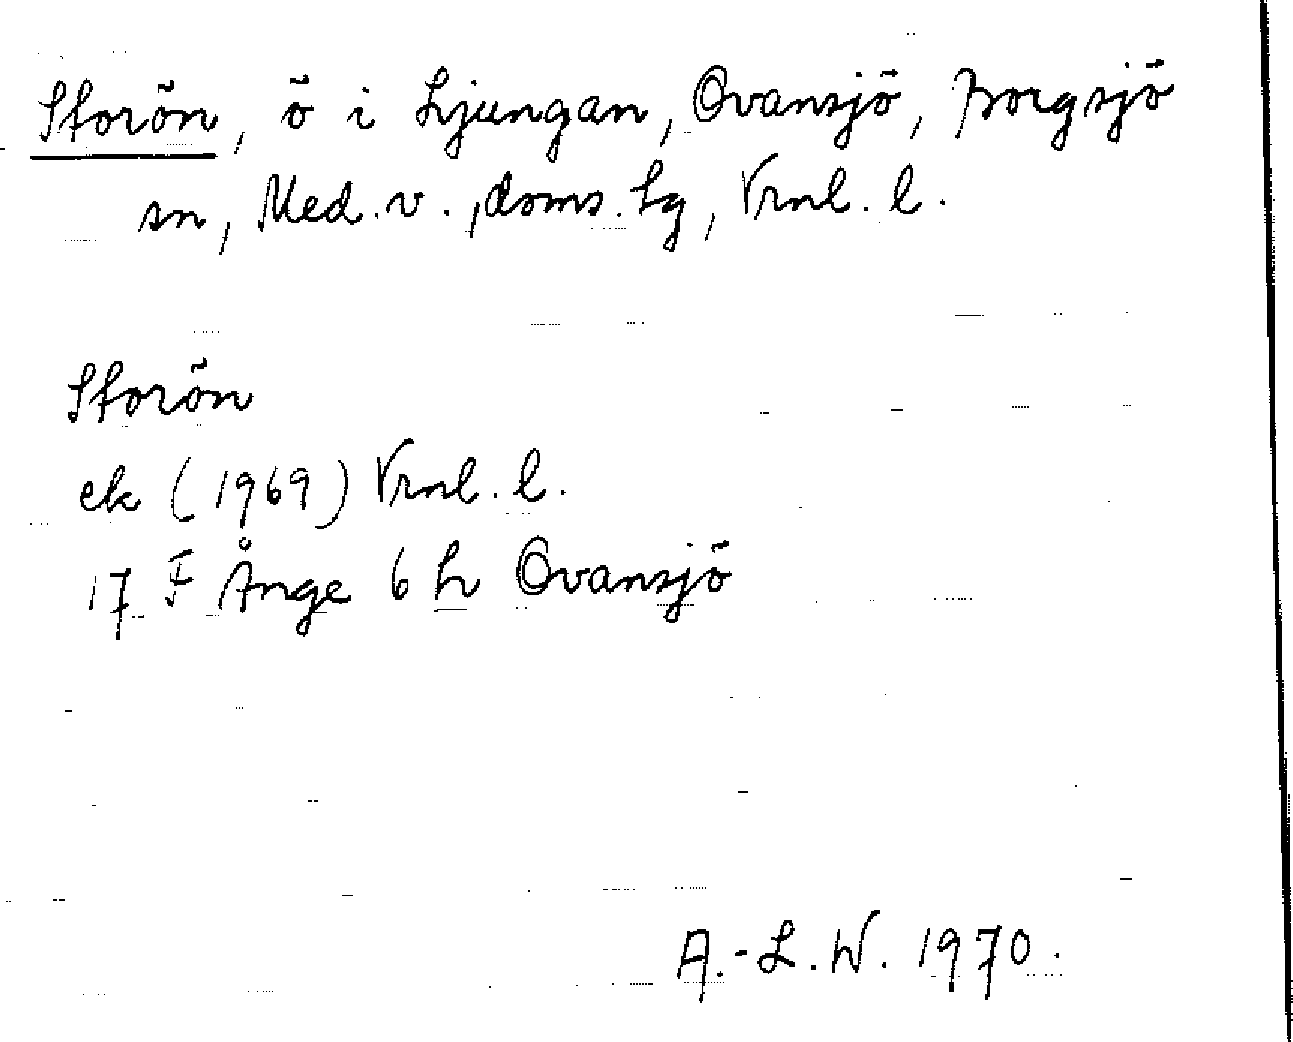 Storön, ö i Ljungan, Ovansjö, Borgsjö
sn, Med. v., doms. lg, Vrnl. l.
Storön
ek (1969) Vrnl. l.
17 F Ånge 6 h Ovansjö
A.-L. W. 1970.